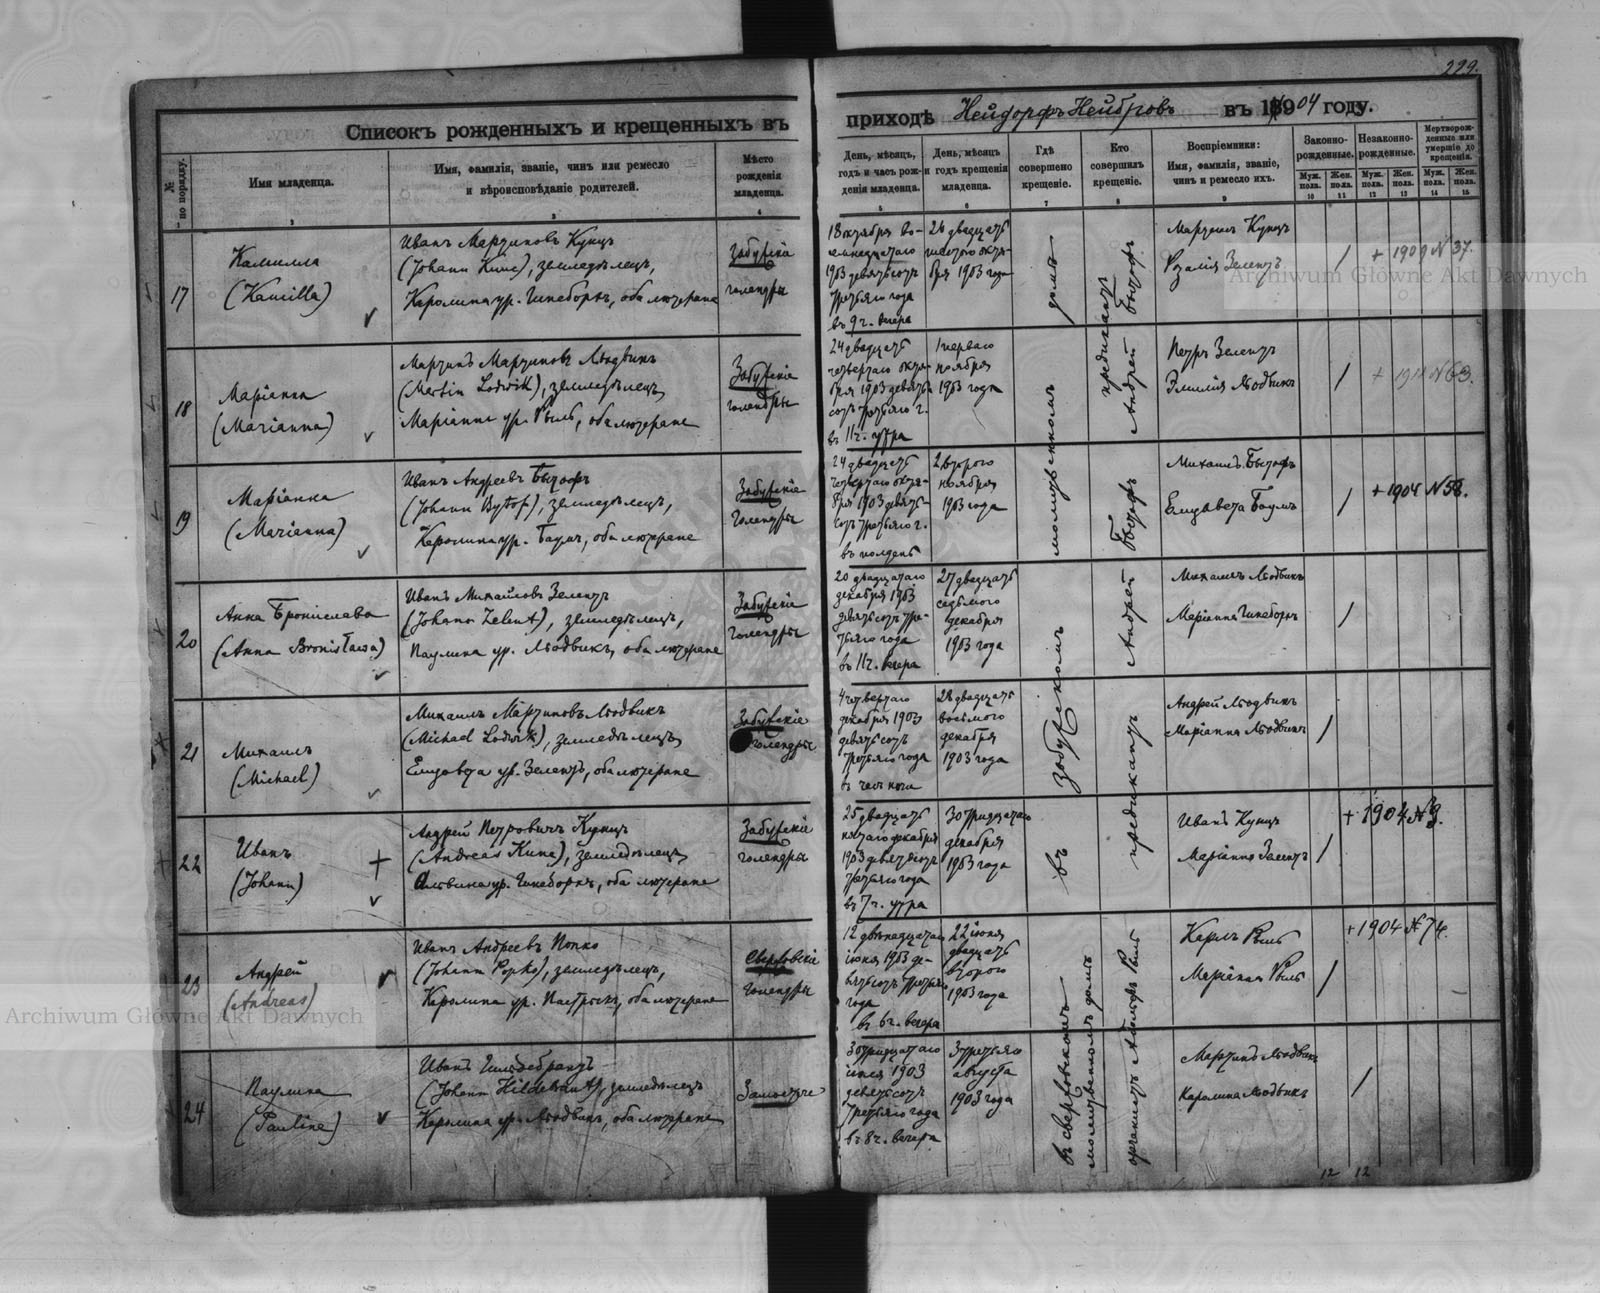 229.
Списокъ рожденныхъ и крещенныхъ въ приходѣ Нейдорфъ Нейбровъ въ 1904 году.
№ по порядку.
Имя младенца.
Имя, фамилія, званіе, чинъ или ремесло и вѣроисповѣданіе родителей.
Мѣсто рожденія младенца.
День, мѣсяцъ, годъ и часъ рожденія младенца.
День, мѣсяцъ и годъ крещенія младенца.
Гдѣ совершено крещеніе.
Кто совершилъ крещеніе.
Воспріемники: Имя, фамилія, званіе, чинъ и ремесло ихъ.
Законнорожденные.
Незаконнорожденные.
Мертворожденные или умершіе до крещенія.
Муж. пола.
Жен. пола.
Муж. пола.
Жен. пола.
Муж. пола.
Жен. пола.
1 2 3 4 5 6 7 8 9 10 11 12 13 14 15
17
Камилла
(Kamilla)
Иванъ Мартиновъ Кунцъ
(Johann Kunc), земледѣлецъ,
Каролина ур. Гинеборгъ, оба лютеране
Забужскіе
голендры
18 октября во-
семнадцатаго
1903 девятьсотъ
третьяго года
въ 9 ч. вечера
26 двадцать
шестого октя-
бря 1903 года
Мартинъ Кунцъ
Розалія Зелентъ
/
+ 1909 N 37.
18
Маріанна
(Marianna)
Мартинъ Мартиновъ Людвикъ
(Martin Ludwik), земледѣлецъ
Маріанна ур. Рыль, оба лютеране
Забужскіе
голендры
24 двадцать
четвертаго октя-
бря 1903 девять-
сотъ третьяго г.
въ 11 ч. утра
1 перваго
ноября
1903 года
Петръ Зелентъ
Эмилія Людвикъ
/
19
Маріанна
(Marianna)
Иванъ Андреевъ Бытофъ
(Johann Bytof), земледѣлецъ,
Каролина ур. Баумъ, оба лютеране
Забужскіе
голендры
24 двадцать
четвертаго октя-
бря 1903 девять-
сотъ третьяго г.
въ полдень
2 второго
ноября
1903 года
Михаилъ Бытофъ
Елизавета Баумъ
/
+ 1904 N 58.
20
Анна Бронислава
(Anna Bronisława)
Иванъ Михайловъ Зелентъ
(Johann Zelent), земледѣлецъ,
Паулина ур. Людвикъ, оба лютеране
Забужскіе
голендры
20 двадцатаго
декабря 1903
девятьсотъ тре-
тьяго года
въ 11 ч. вечера
27 двадцать
седьмого
декабря
1903 года
Михаилъ Людвикъ
Маріанна Гинеборгъ
/
21
Михаилъ
(Michael)
Михаилъ Мартиновъ Людвикъ
(Michael Ludwik), земледѣлецъ
Елизавета ур. Зелентъ, оба лютеране
Забужскіе
голендры
4 четвертаго
декабря 1903
девятьсотъ
третьяго года
28 двадцать
восьмого
декабря
1903 года
Андрей Людвикъ
Маріанна Людвикъ
/
22
Иванъ
(Johann)
Андрей Петровичъ Кунцъ
(Andreas Kunc), земледѣлецъ
Альвина ур. Гинеборгъ, оба лютеране
Забужскіе
голендры
25 двадцать
пятаго декабря
1903 девятьсотъ
третьяго года
въ 7 ч. утра
30 тридцатаго
декабря
1903 года
Иванъ Кунцъ
Маріанна Зелентъ
/
въ забужскомъ молитвенномъ домѣ
предикантъ Андрей Бытофъ
предикантъ Андрей Бытофъ
23
Андрей
(Andreas)
Иванъ Андреевъ Попко
(Johann Popko), земледѣлецъ,
Каролина ур. Пастрыкъ, оба лютеране
Свержовскіе
голендры
12 двѣнадцатаго
іюня 1903 де-
вятьсотъ третья-
го года
въ 6 ч. вечера
22 іюня
двадцать
второго
1903 года
Карлъ Рыль
Маріанна Рыль
/
+ 1904 N 74.
24
Паулина
(Pauline)
Иванъ Гильдебрантъ
(Johann Hildebrandt), земледѣлецъ
Каролина ур. Людвикъ, оба лютеране
Замостче
30 тридцатаго
іюля 1903
девятьсотъ
третьяго года
въ 8 ч. вечера
3 третьяго
августа
1903 года
въ свержовскомъ
молитвенномъ домѣ
органистъ Адольфъ Рыль
Мартинъ Людвикъ
Каролина Людвикъ
/
12 12
Archiwum Główne Akt Dawnych
Archiwum Główne Akt Dawnych